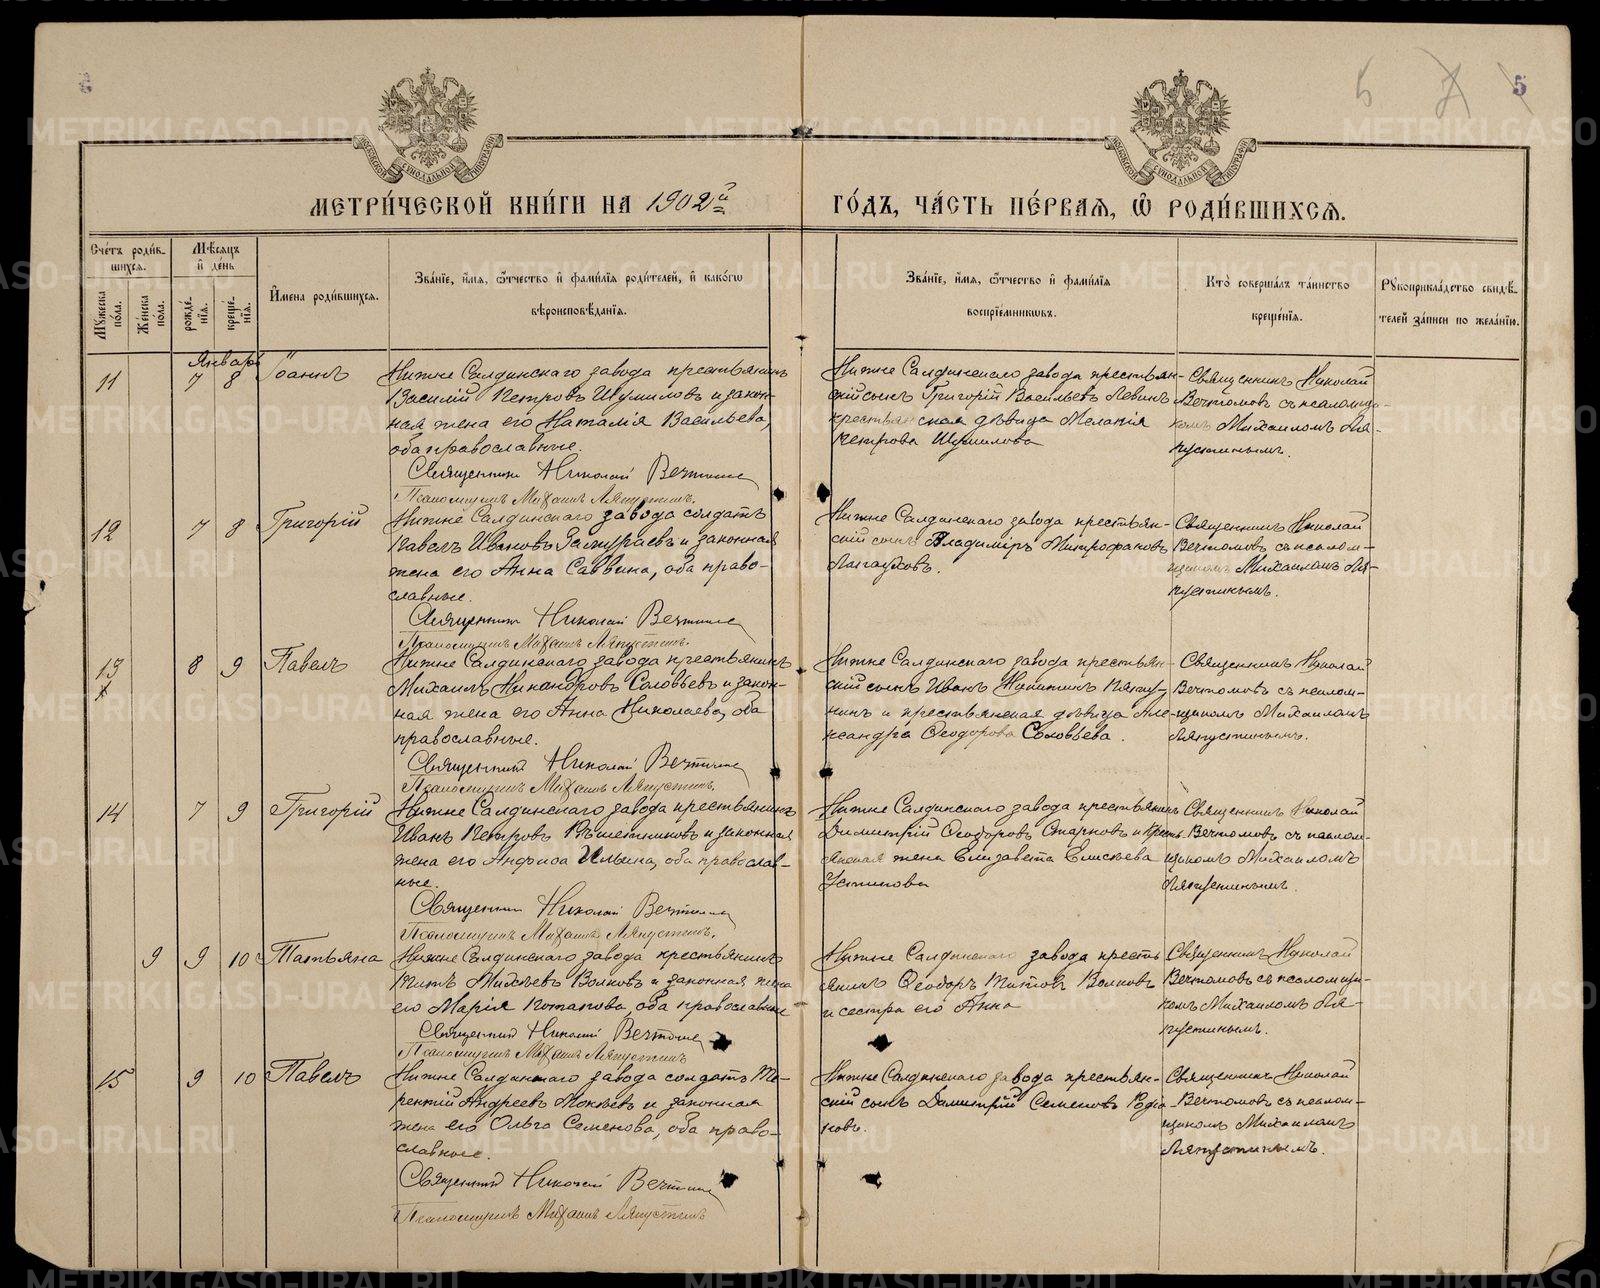 5
МЕТРИ́ЧЕСКОЙ КНИ́ГИ НА 1902й
ГО́ДЪ, ЧА́СТЬ ПЕ́РВАЯ, Ѡ РОДИ́ВШИХСЯ.
Сче́тъ роди́в-
шихся.
Му́жеска по́ла.
Же́нска по́ла.
Мѣ́сяцъ и де́нь
рожде́нія.
креще́нія.
И́мена роди́вшихся.
Зва́ніе, и́мя, ѻ́тчество и фами́лія роди́телей, и како́гѡ
вѣроисповѣ́данія.
Зва́ніе, и́мя, ѻ́тчество и фами́лія
воспріе́мниковъ.
Кто̀ соверша́лъ та́инство
креще́нія.
Рꙋкоприкла́дство свидѣ́-
телей за́писи по жела́нію.
Январь
11 7 8 Іоаннъ
Нижне Салдинскаго завода крестьянинъ
Василій Петровъ Шумиловъ и закон-
ная жена его Наталія Васильева,
оба православные.
Священникъ Николай Вечтомовъ
Псаломщикъ Михаилъ Ляпустинъ.
Нижне Салдинскаго завода крестьян-
скій сынъ Григорій Васильевъ Левинъ
крестьянская дѣвица Меланія
Петрова Шумилова
Священникъ Николай
Вечтомовъ съ псаломщи-
комъ Михаиломъ Ля-
пустинымъ.
12 7 8 Григорій
Нижне Салдинскаго завода солдатъ
Павелъ Ивановъ и законная
жена его Анна Саввина, оба право-
славные.
Священникъ Николай Вечтомовъ
Псаломщикъ Михаилъ Ляпустинъ.
Нижне Салдинскаго завода крестьян-
скій сынъ Владиміръ Митрофановъ
Священникъ Николай
Вечтомовъ съ псалом-
щикомъ Михаиломъ Ля-
пустинымъ.
13 8 9 Павелъ
Нижне Салдинскаго завода крестьянинъ
Михаилъ Никандровъ Соловьевъ и закон-
ная жена его Анна Николаева, оба
православные.
Священникъ Николай Вечтомовъ
Псаломщикъ Михаилъ Ляпустинъ.
Нижне Салдинскаго завода крестьян-
скій сынъ Иванъ Никитинъ
и крестьянская дѣвица Але-
ксандра Ѳеодорова Соловьева.
Священникъ Николай
Вечтомовъ съ псалом-
щикомъ Михаиломъ
Ляпустинымъ.
14 7 9 Григорій
Нижне Салдинскаго завода крестьянинъ
Иванъ Петровъ Рѣшетниковъ и законная
жена его Ильина, оба православ-
ные.
Священникъ Николай Вечтомовъ
Псаломщикъ Михаилъ Ляпустинъ.
Нижне Салдинскаго завода крестьянинъ
Димитрій Ѳеодоровъ Старковъ и кресть-
янская жена Елизавета Елисѣева
Устинова
Священникъ Николай
Вечтомовъ съ псалом-
щикомъ Михаиломъ
Ляпустинымъ.
9 9 10 Татьяна
Нижне Салдинскаго завода крестьянинъ
Титъ Михѣевъ Волковъ и законная жена
его Марія Потапова, оба православные
Священникъ Николай Вечтомовъ
Псаломщикъ Михаилъ Ляпустинъ
Нижне Салдинскаго завода кресть-
янинъ Ѳеодоръ Титовъ Волковъ
и сестра его Анна
Священникъ Николай
Вечтомовъ съ псаломщи-
комъ Михаиломъ Ля-
пустинымъ.
15 9 10 Павелъ
Нижне Салдинскаго завода солдатъ Те-
рентій Андреевъ Мокѣевъ и законная
жена его Ольга Семенова, оба право-
славные.
Священникъ Николай Вечтомовъ
Псаломщикъ Михаилъ Ляпустинъ
Нижне Салдинскаго завода крестьян-
скій сынъ Димитрій Семеновъ Родіо-
новъ.
Священникъ Николай
Вечтомовъ съ псалом-
щикомъ Михаиломъ
Ляпустинымъ.
METRIKI.GASO-URAL.RU